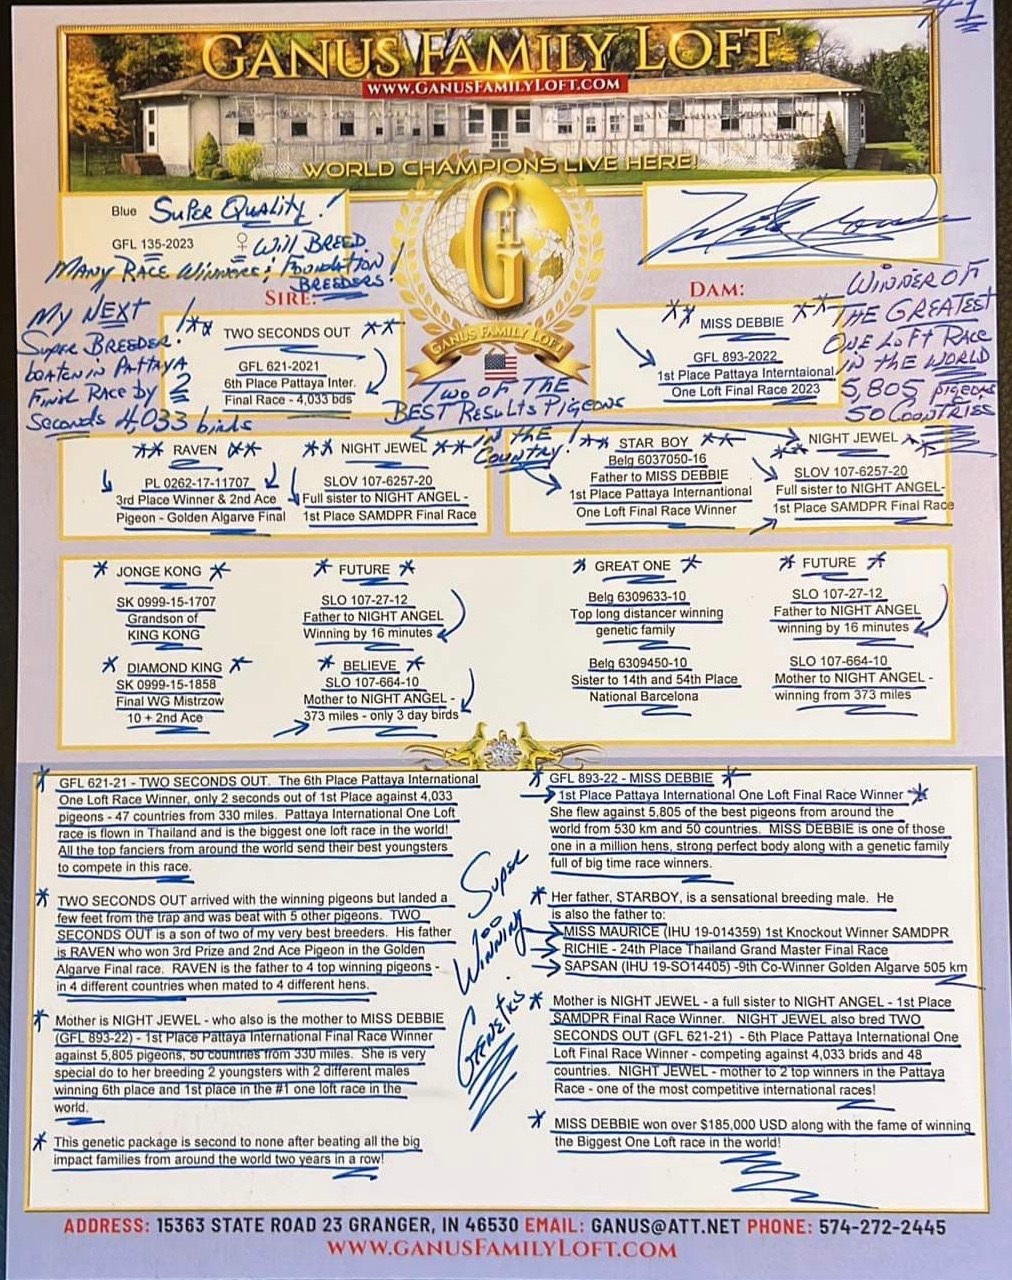 #1
GANUS FAMILY LOFT
WWW.GANUSFAMILYLOFT.COM
WORLD CHAMPIONS LIVE HERE!
Blue Super Quality!
GFL 135-2023 ♀ Will BREED
MANY RACE Winners! Foundation
BREEDERS!
SIRE:
GFL
GANUS FAMILY LOFT
DAM:
My NEXT
Super Breeder!
beaten in Pattaya
Final Race by 2
Seconds 4,033 birds
TWO SECONDS OUT
GFL 621-2021
6th Place Pattaya Inter.
Final Race - 4,033 bds
Two OF THE
BEST Results Pigeons
in the
Country!
MISS DEBBIE
GFL 893-2022
1st Place Pattaya Interntaional
One Loft Final Race 2023
WINNER OF
THE GREATEST
ONE LOFT RACE
in the WORLD
5,805 pigeons
50 Countries
RAVEN
PL 0262-17-11707
3rd Place Winner & 2nd Ace
Pigeon - Golden Algarve Final
NIGHT JEWEL
SLOV 107-6257-20
Full sister to NIGHT ANGEL-
1st Place SAMDPR Final Race
STAR BOY
Belg 6037050-16
Father to MISS DEBBIE
1st Place Pattaya Internantional
One Loft Final Race Winner
NIGHT JEWEL
SLOV 107-6257-20
Full sister to NIGHT ANGEL-
1st Place SAMDPR Final Race
JONGE KONG
SK 0999-15-1707
Grandson of
KING KONG
DIAMOND KING
SK 0999-15-1858
Final WG Mistrzow
10 + 2nd Ace
FUTURE
SLO 107-27-12
Father to NIGHT ANGEL
Winning by 16 minutes
BELIEVE
SLO 107-664-10
Mother to NIGHT ANGEL -
373 miles - only 3 day birds
GREAT ONE
Belg 6309633-10
Top long distancer winning
genetic family
Belg 6309450-10
Sister to 14th and 54th Place
National Barcelona
FUTURE
SLO 107-27-12
Father to NIGHT ANGEL
winning by 16 minutes
SLO 107-664-10
Mother to NIGHT ANGEL -
winning from 373 miles
GFL 621-21 - TWO SECONDS OUT. The 6th Place Pattaya International
One Loft Race Winner, only 2 seconds out of 1st Place against 4,033
pigeons - 47 countries from 330 miles. Pattaya International One Loft
race is flown in Thailand and is the biggest one loft race in the world!
All the top fanciers from around the world send their best youngsters
to compete in this race.
TWO SECONDS OUT arrived with the winning pigeons but landed a
few feet from the trap and was beat with 5 other pigeons. TWO
SECONDS OUT is a son of two of my very best breeders. His father
is RAVEN who won 3rd Prize and 2nd Ace Pigeon in the Golden
Algarve Final race. RAVEN is the father to 4 top winning pigeons -
in 4 different countries when mated to 4 different hens.
Mother is NIGHT JEWEL - who also is the mother to MISS DEBBIE
(GFL 893-22) - 1st Place Pattaya International Final Race Winner
against 5,805 pigeons, 50 countries from 330 miles. She is very
special do to her breeding 2 youngsters with 2 different males
winning 6th place and 1st place in the #1 one loft race in the
world.
This genetic package is second to none after beating all the big
impact families from around the world two years in a row!
Super
Winning
Genetics
GFL 893-22 - MISS DEBBIE
1st Place Pattaya International One Loft Final Race Winner
She flew against 5,805 of the best pigeons from around the
world from 530 km and 50 countries. MISS DEBBIE is one of those
one in a million hens, strong perfect body along with a genetic family
full of big time race winners.
Her father, STARBOY, is a sensational breeding male. He
is also the father to:
MISS MAURICE (IHU 19-014359) 1st Knockout Winner SAMDPR
RICHIE - 24th Place Thailand Grand Master Final Race
SAPSAN (IHU 19-SO14405) -9th Co-Winner Golden Algarve 505 km
Mother is NIGHT JEWEL - a full sister to NIGHT ANGEL - 1st Place
SAMDPR Final Race Winner. NIGHT JEWEL also bred TWO
SECONDS OUT (GFL 621-21) - 6th Place Pattaya International One
Loft Final Race Winner - competing against 4,033 brids and 48
countries. NIGHT JEWEL - mother to 2 top winners in the Pattaya
Race - one of the most competitive international races!
MISS DEBBIE won over $185,000 USD along with the fame of winning
the Biggest One Loft race in the world!
ADDRESS: 15363 STATE ROAD 23 GRANGER, IN 46530 EMAIL: GANUS@ATT.NET PHONE: 574-272-2445
WWW.GANUSFAMILYLOFT.COM